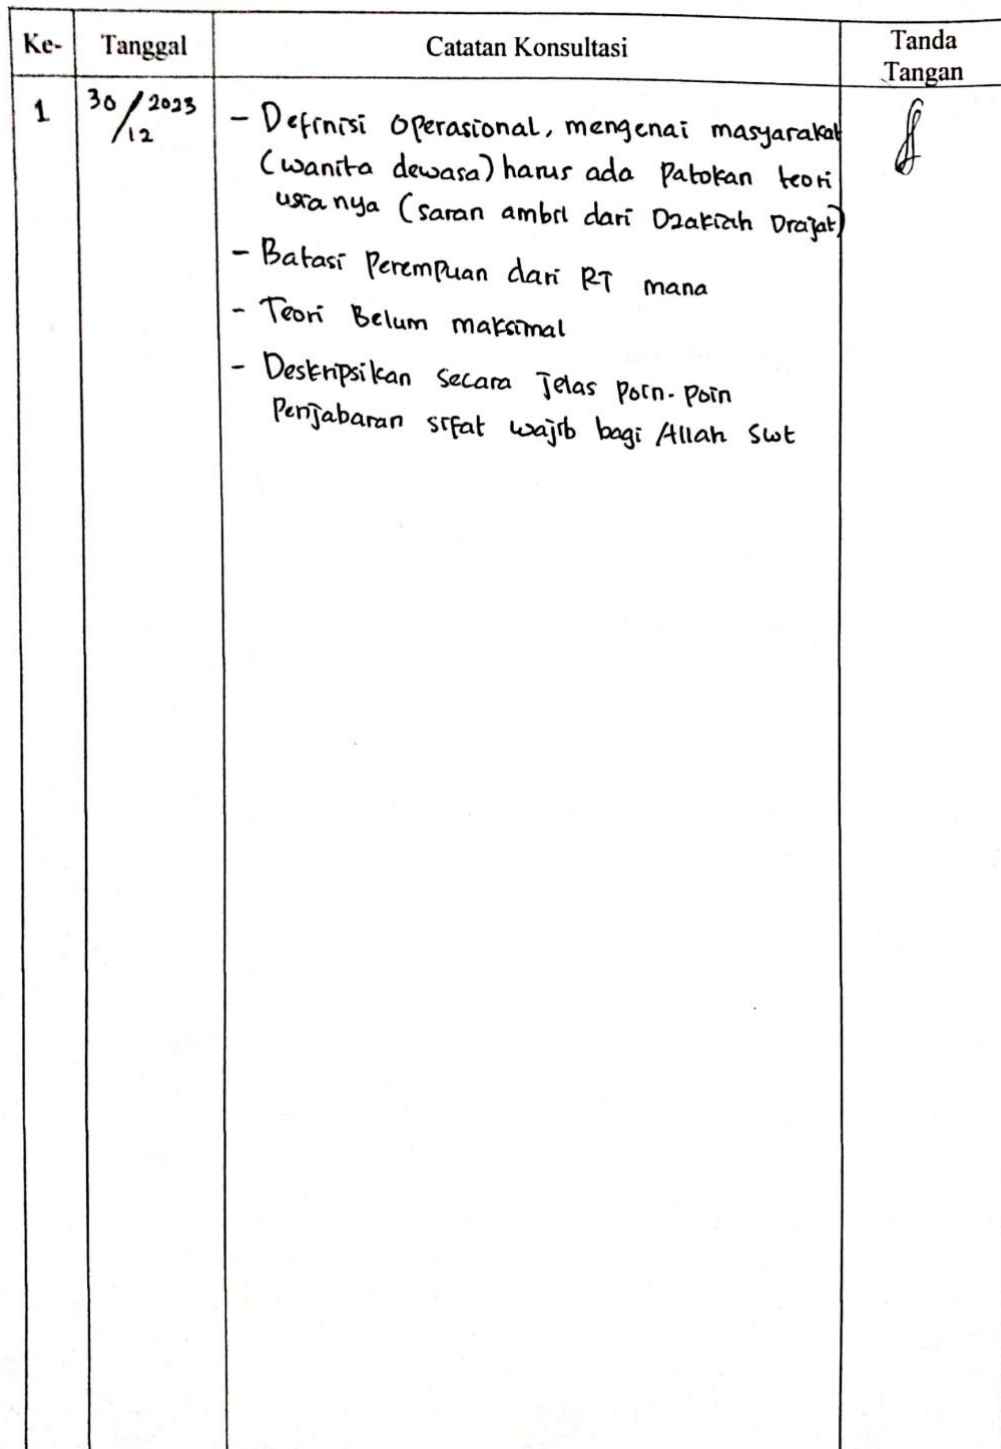 Ke- Tanggal Catatan Konsultasi Tanda
Tangan
1 30/12 2023 - Definisi Operasional, mengenai masyarakat
(wanita dewasa) harus ada Patokan teori
usianya (saran ambil dari Dzakiah Drajat)
- Batasi Perempuan dari RT mana
- Teori Belum maksimal
- Deskripsikan Secara Jelas Poin-Poin
Penjabaran sifat wajib bagi Allah Swt